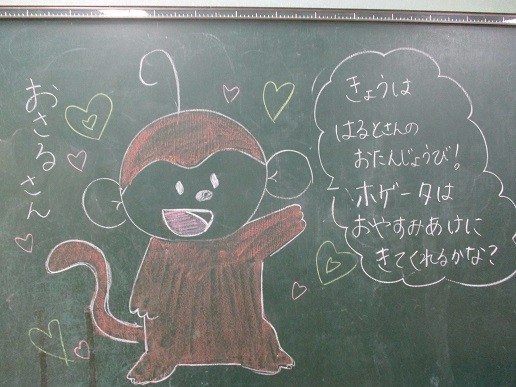 おさるさん
きょうは
はるとさんの
おたんじょうび！
ホゲータは
おやすみあけに
きてくれるかな？